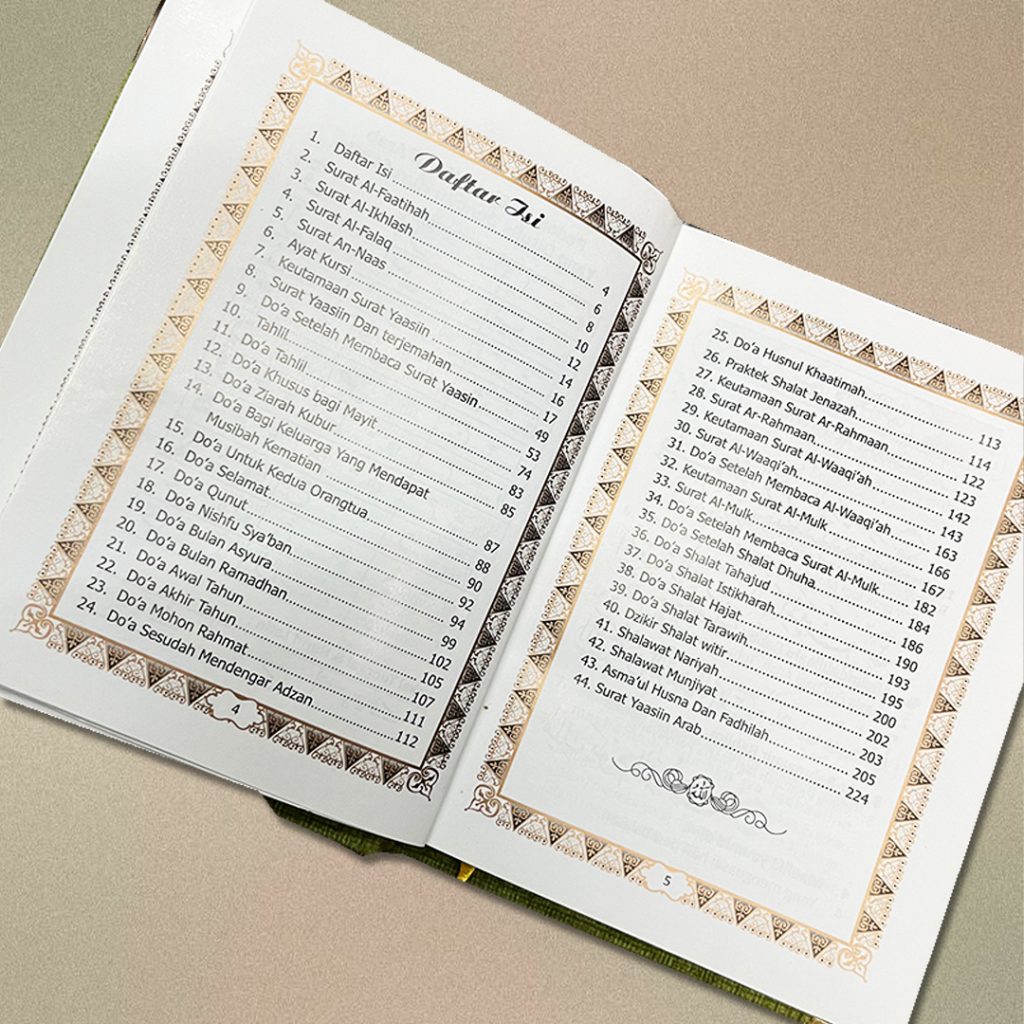 Daftar Isi
1. Daftar Isi ........ 4
2. Surat Al-Faatihah ........ 6
3. Surat Al-Ikhlash ........ 8
4. Surat Al-Falaq ........ 10
5. Surat An-Naas ........ 12
6. Ayat Kursi ........ 14
7. Keutamaan Surat Yaasiin ........ 16
8. Surat Yaasiin Dan terjemahan ........ 17
9. Do'a Setelah Membaca Surat Yaasin ........ 49
10. Tahlil ........ 53
11. Do'a Tahlil ........ 74
12. Do'a Khusus bagi Mayit ........ 83
13. Do'a Ziarah Kubur ........ 85
14. Do'a Bagi Keluarga Yang Mendapat
Musibah Kematian ........ 87
15. Do'a Untuk Kedua Orangtua ........ 88
16. Do'a Selamat ........ 90
17. Do'a Qunut ........ 92
18. Do'a Nishfu Sya'ban ........ 94
19. Do'a Bulan Asyura ........ 99
20. Do'a Bulan Ramadhan ........ 102
21. Do'a Awal Tahun ........ 105
22. Do'a Akhir Tahun ........ 107
23. Do'a Mohon Rahmat ........ 111
24. Do'a Sesudah Mendengar Adzan ........ 112
4
25. Do'a Husnul Khaatimah ........ 113
26. Praktek Shalat Jenazah ........ 114
27. Keutamaan Surat Ar-Rahmaan ........ 122
28. Surat Ar-Rahmaan ........ 123
29. Keutamaan Surat Al-Waaqi'ah ........ 142
30. Surat Al-Waaqi'ah ........ 143
31. Do'a Setelah Membaca Al-Waaqi'ah ........ 163
32. Keutamaan Surat Al-Mulk ........ 166
33. Surat Al-Mulk ........ 167
34. Do'a Setelah Membaca Surat Al-Mulk ........ 182
35. Do'a Setelah Shalat Dhuha ........ 184
36. Do'a Shalat Tahajud ........ 186
37. Do'a Shalat Istikharah ........ 190
38. Do'a Shalat Hajat ........ 193
39. Do'a Shalat Tarawih ........ 195
40. Dzikir Shalat witir ........ 200
41. Shalawat Nariyah ........ 202
42. Shalawat Munjiyat ........ 203
43. Asma'ul Husna Dan Fadhilah ........ 205
44. Surat Yaasiin Arab ........ 224
5